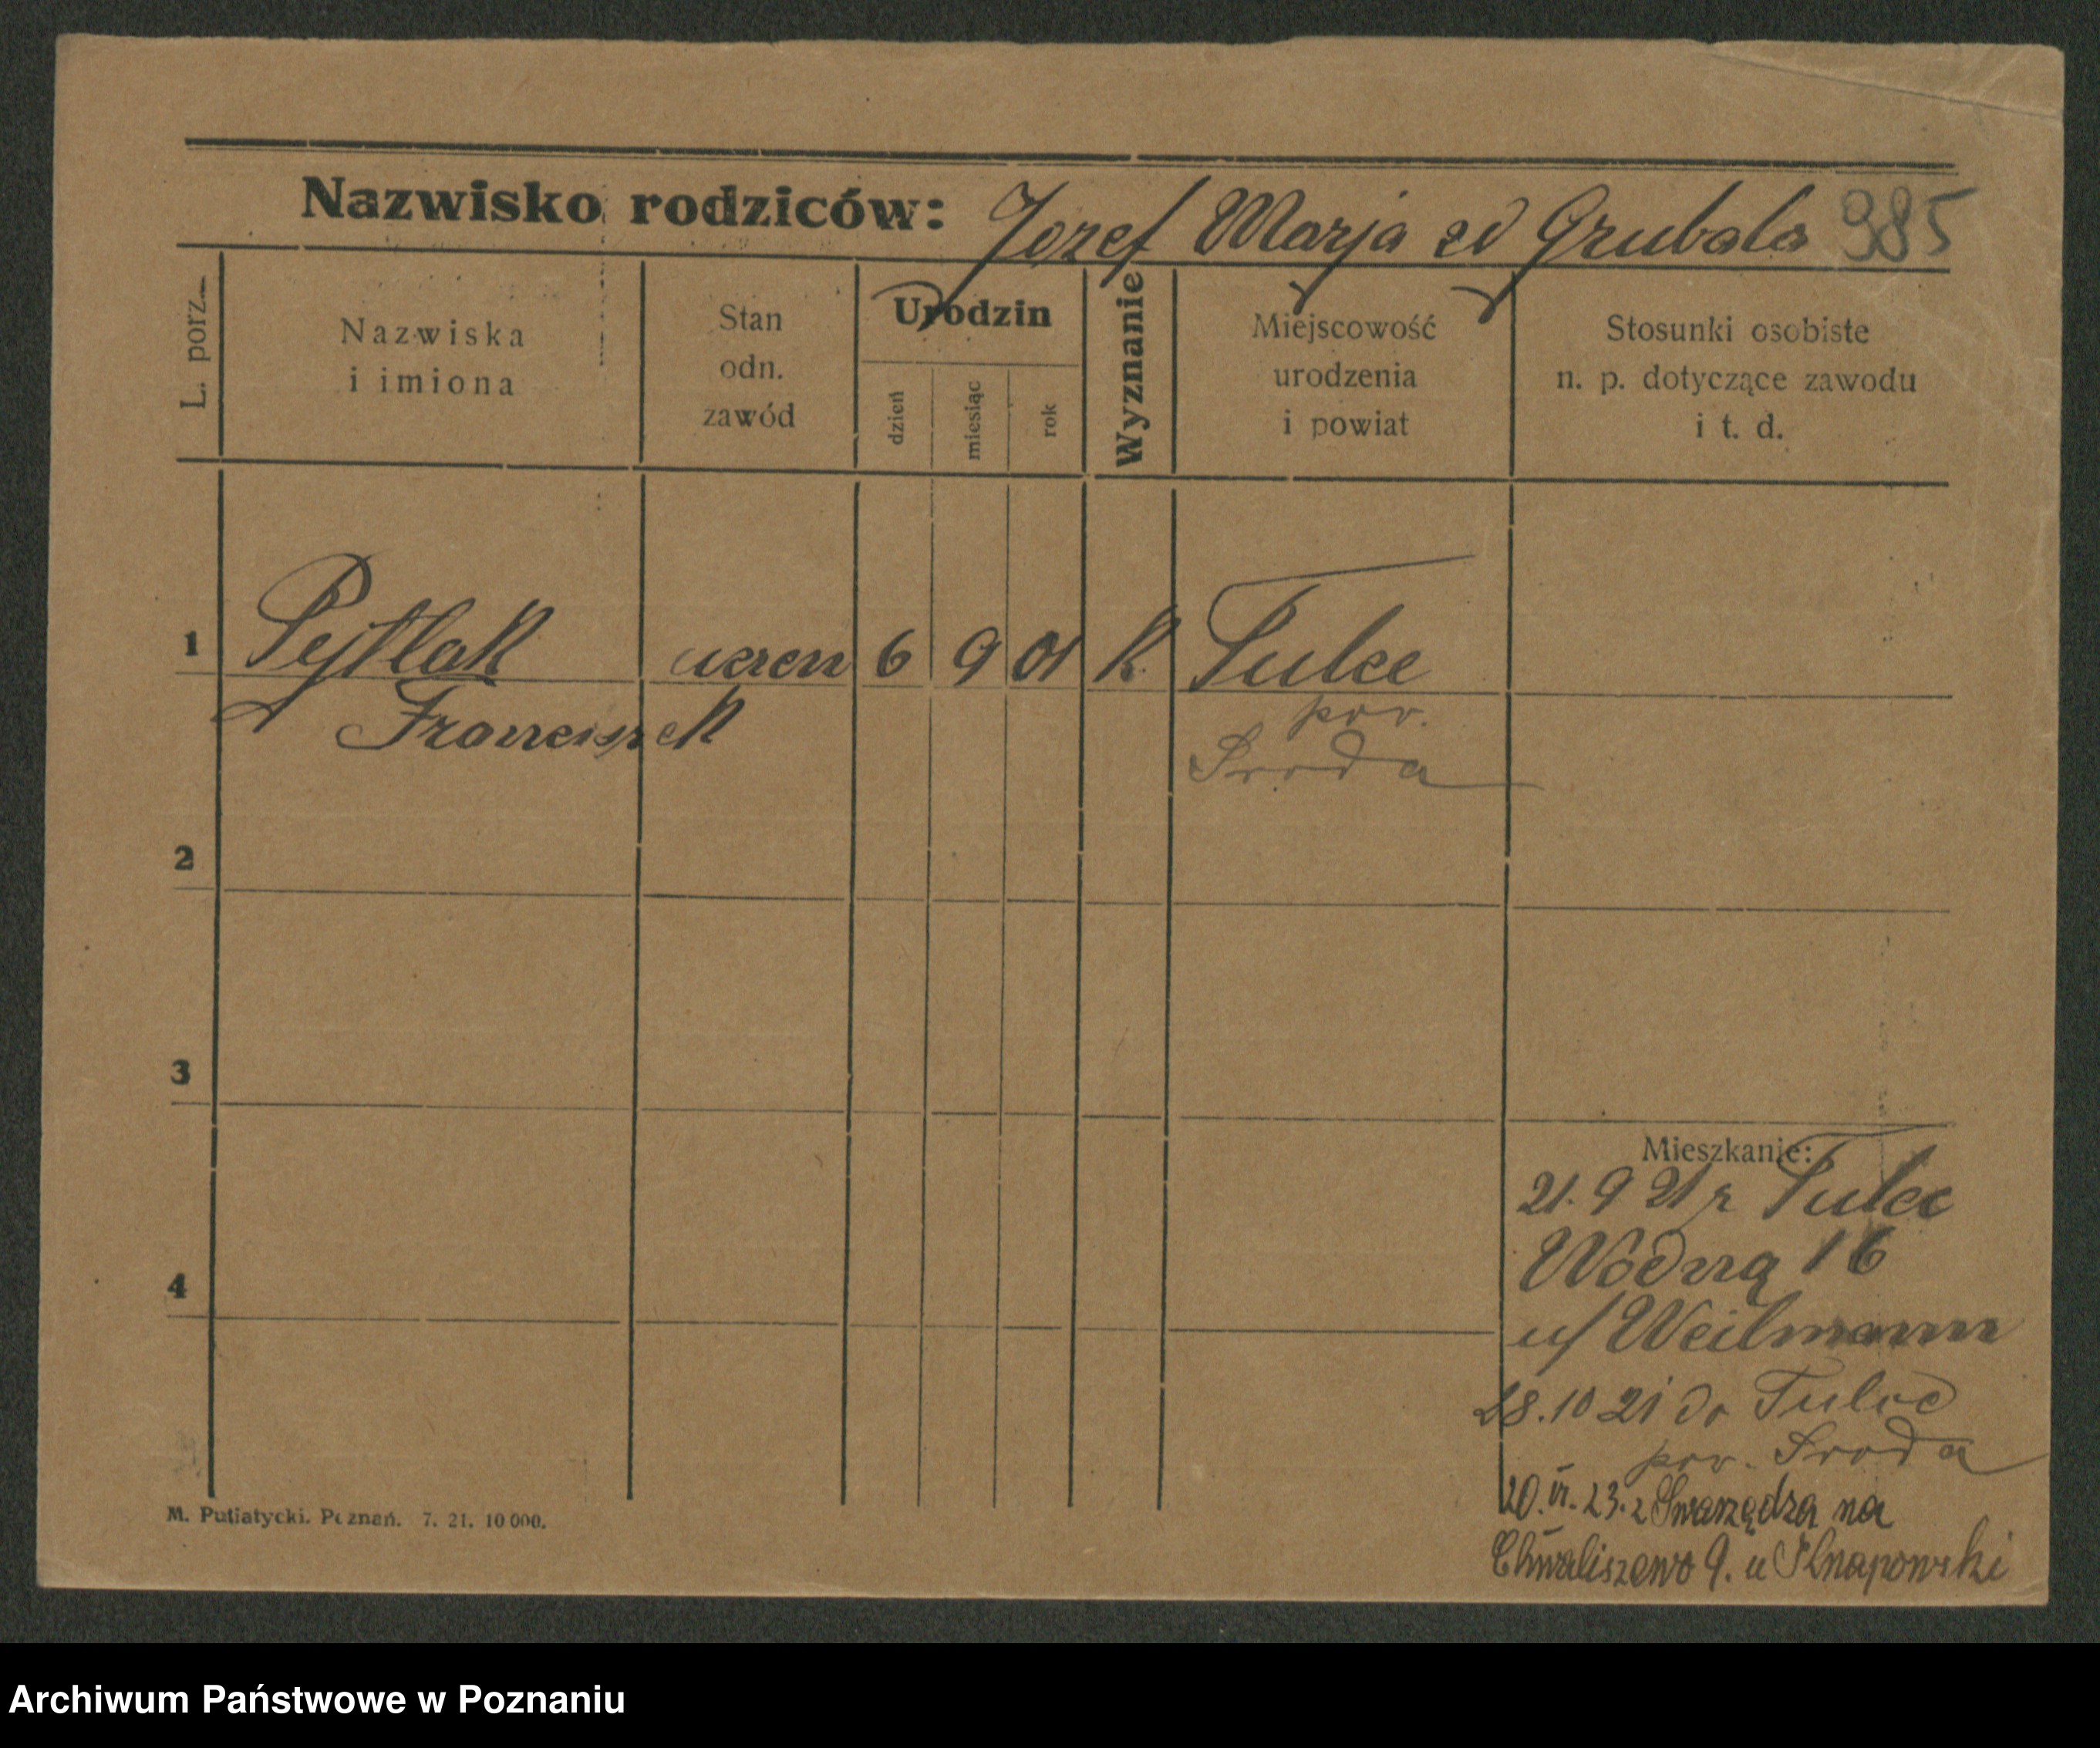 Nazwisko rodziców: Jozef Marja zd Grubala 385
L. porz.
Nazwiska
i imiona
Stan
odn.
zawód
Urodzin
dzień
miesiąc
rok
Wyznanie
Miejscowość
urodzenia
i powiat
Stosunki osobiste
n. p. dotyczące zawodu
i t. d.
1 Pytlak uczen 6 9 01 k. Tulce
Franciszek pow.
Sroda
2
3
4
Mieszkanie:
21. 9 21 z Tulce
Wodna 16
u/ Weilmann
28. 10 21 do Tulce
pow. Sroda
20. VI. 23. z Swarzędza na
Chwaliszewo 9. u
M. Putiatycki. Poznań. 7. 21. 10 000.
Archiwum Państwowe w Poznaniu